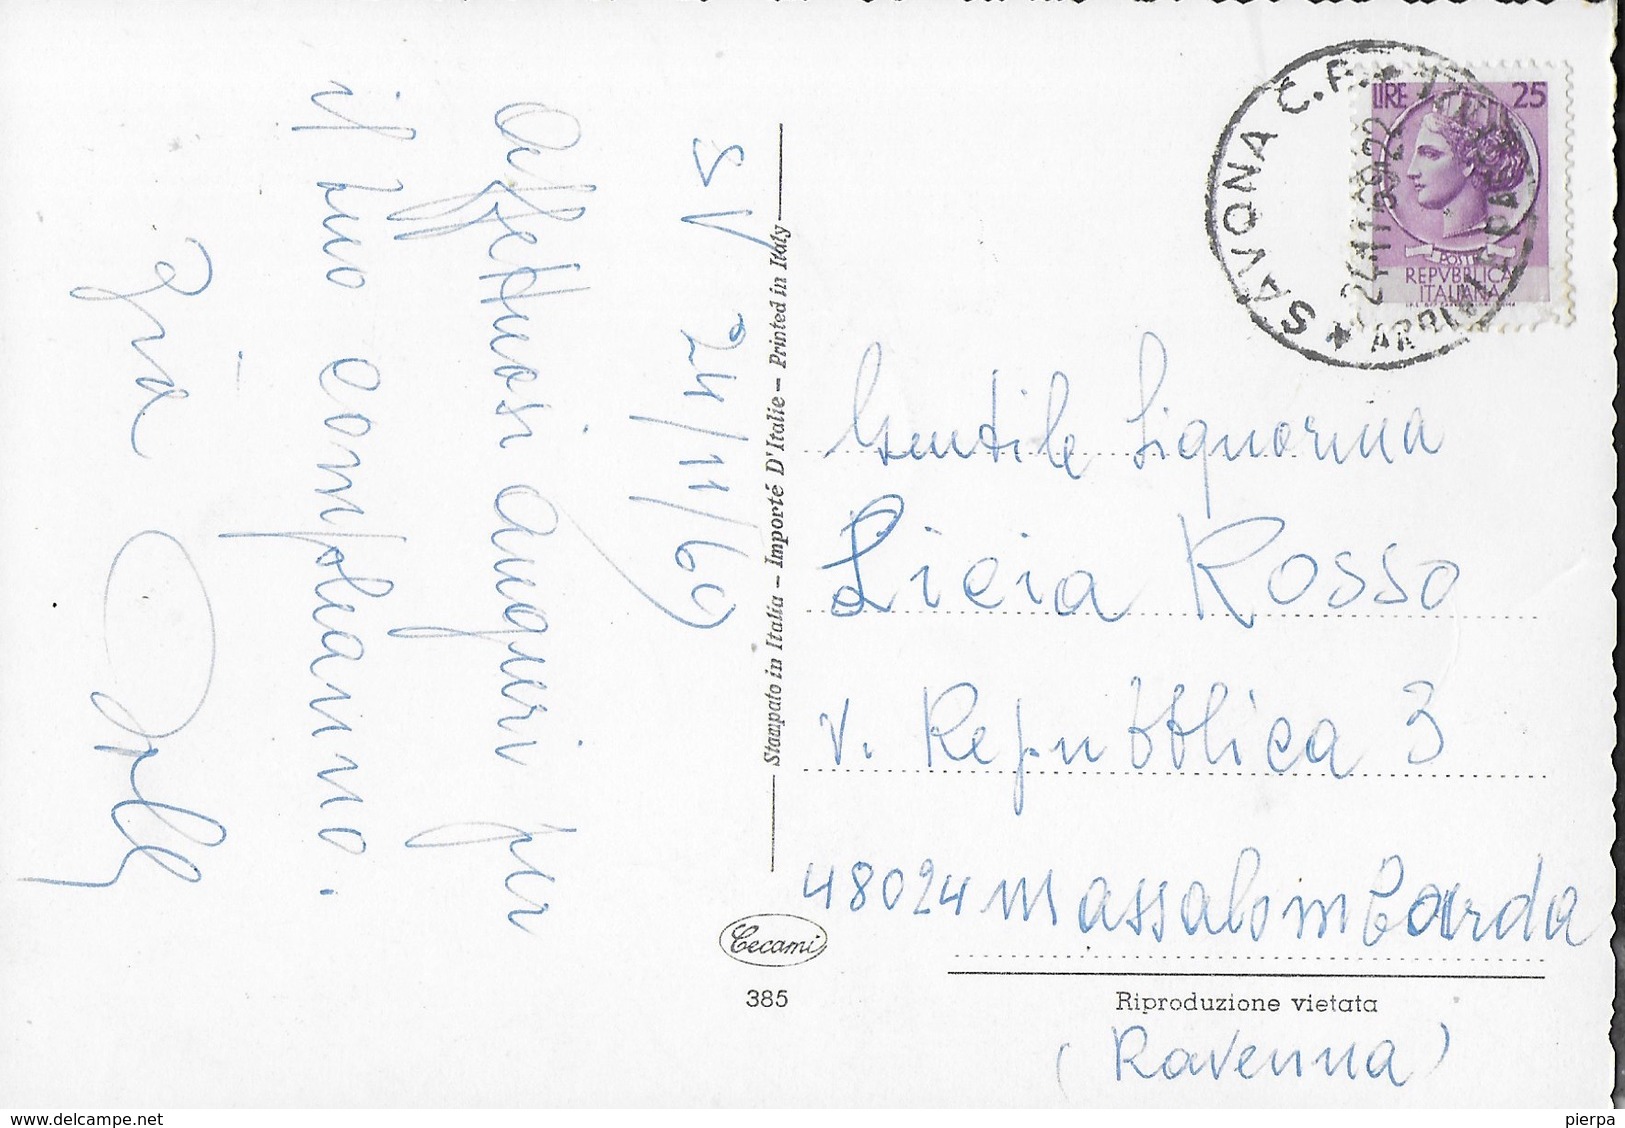 SV 24/11/69
Affettuosi auguri per
il tuo compleanno.
Zia
Stampato in Italia - Importé D'Italie - Printed in Italy
Cecami
385
SAVONA C.P.
24.11.69 22
LIRE 25
POSTE
REPVBBLICA
ITALIANA
Gentile Signorina
Licia Rosso
V. Repubblica 3
48024 Massalombarda
Riproduzione vietata
(Ravenna)
delcampe.net
pierpa